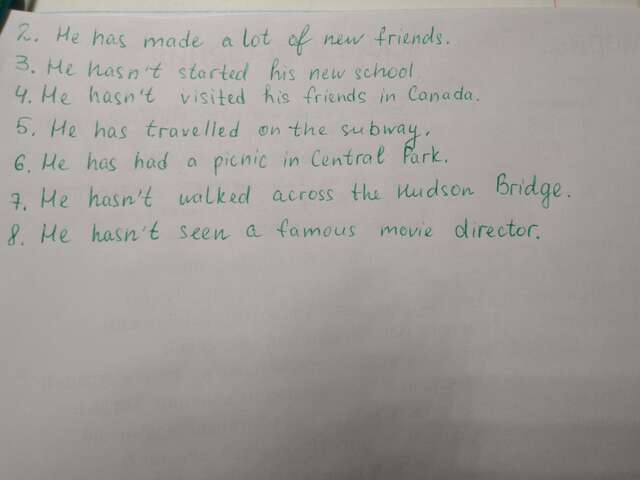 2. He has made a lot of new friends.
3. He hasn't started his new school.
4. He hasn't visited his friends in Canada.
5. He has travelled on the subway.
6. He has had a picnic in Central Park.
7. He hasn't walked across the Hudson Bridge.
8. He hasn't seen a famous movie director.